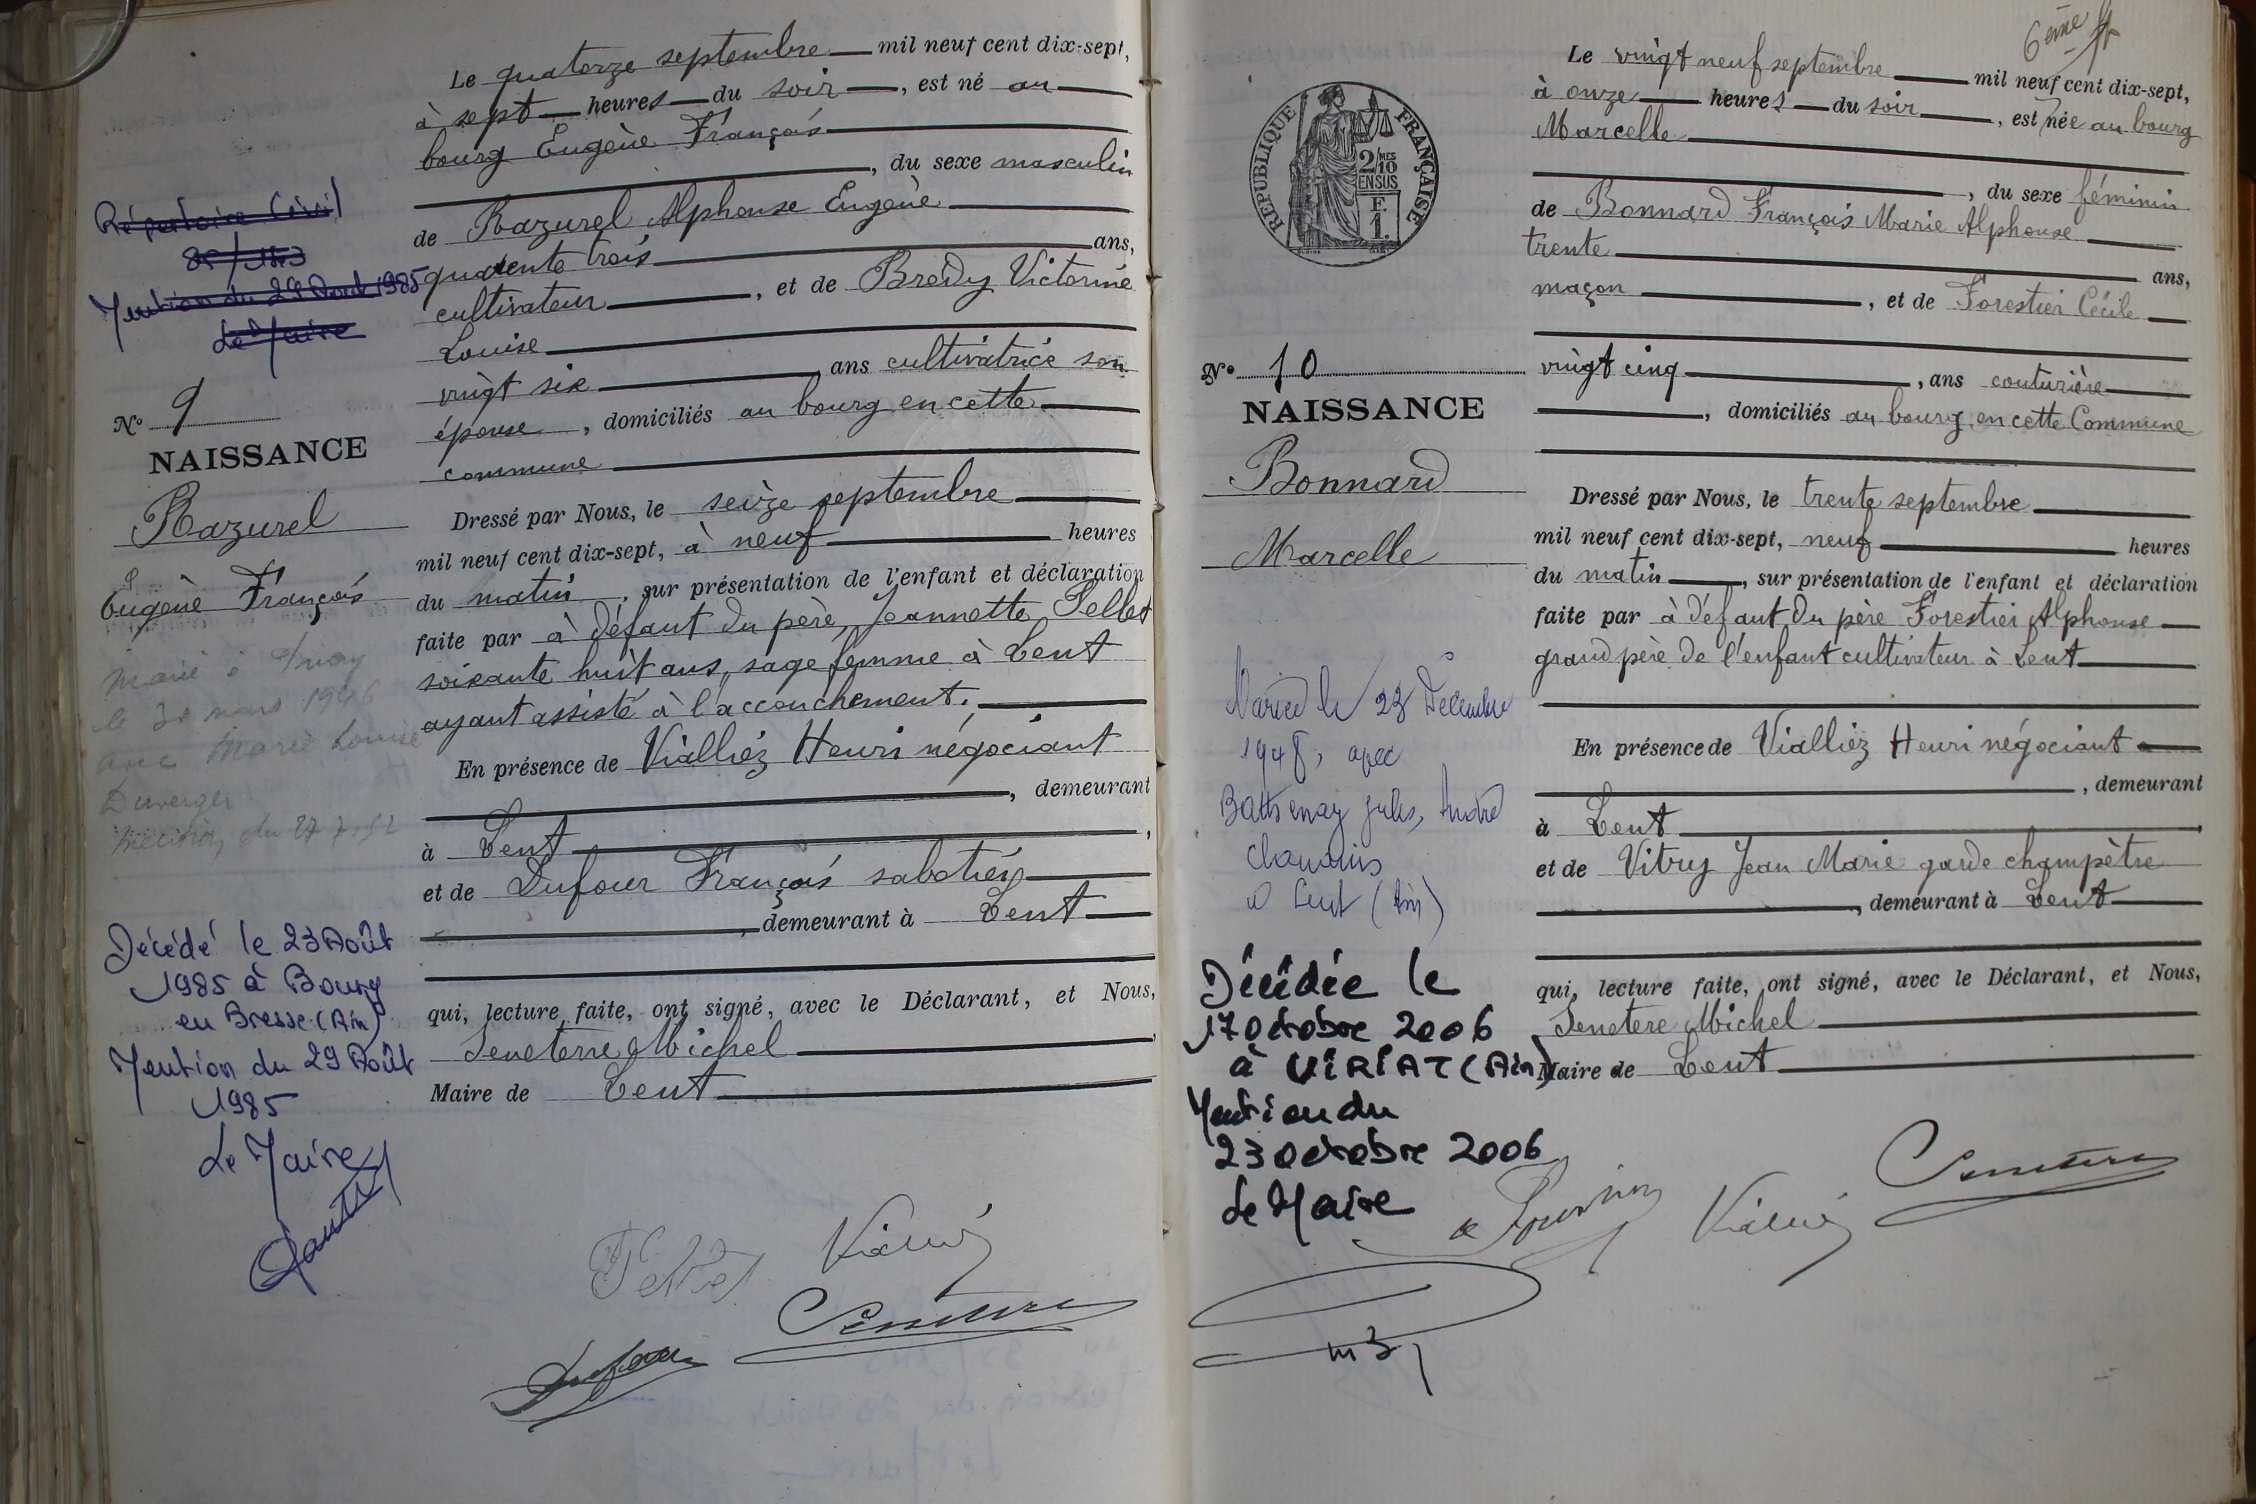 Le quatorze septembre mil neuf cent dix-sept,
à sept heures du soir, est né au
bourg Eugène François
, du sexe masculin
de Razurel Alphonse Eugène
quarente trois ans,
cultivateur, et de Bredy Victorine
Louise
vingt six ans cultivatrice son
épouse, domiciliés au bourg en cette
commune
Dressé par Nous, le seize septembre
mil neuf cent dix-sept, à neuf heures
du matin, sur présentation de l'enfant et déclaration
faite par à défaut du père, Jeannette Pellet
soixante huit ans, sage femme à Lent
ayant assisté à l'accouchement.
En présence de Vialliéz Henri négociant
, demeurant
à Lent,
et de Dufour François sabotier
, demeurant à Lent
qui, lecture faite, ont signé, avec le Déclarant, et Nous,
Seneterre Michel
Maire de Lent
Répertoire Civil
Mention du 29 Août 1985
Le Maire
No 9
NAISSANCE
Razurel
Eugène François
Marié à
le 30 mars 1946
avec Marie Louise
Duverger
Décédé le 23 Août
1985 à Bourg
en Bresse (Ain)
Mention du 29 Août
1985
Le Maire
Pellet
Vialliéz
Seneterre
Dufour
6ème ft
Le vingt neuf septembre mil neuf cent dix-sept,
à onze heures du soir, est née au bourg
Marcelle
, du sexe féminin
de Bonnard François Marie Alphonse
trente ans,
maçon, et de Forestier Cécile
vingt cinq, ans couturière
, domiciliés au bourg en cette Commune
Dressé par Nous, le trente septembre
mil neuf cent dix-sept, neuf heures
du matin, sur présentation de l'enfant et déclaration
faite par à défaut du père Forestier Alphonse
grand père de l'enfant cultivateur à Lent
En présence de Vialliéz Henri négociant
, demeurant
à Lent,
et de Vitry Jean Marie garde champêtre
, demeurant à Lent
qui, lecture faite, ont signé, avec le Déclarant, et Nous,
Senetere Michel
Maire de Lent
RÉPUBLIQUE FRANÇAISE
2/MES
10
EN SUS
F.
1.
No 10
NAISSANCE
Bonnard
Marcelle
Mariée le 23 Décembre
1948, avec
Jules, André
à Lent (Ain)
Décédée le
17 Octobre 2006
à VIRIAT (Ain)
Mention du
23 octobre 2006
Le Maire
Vialliéz
Seneterre